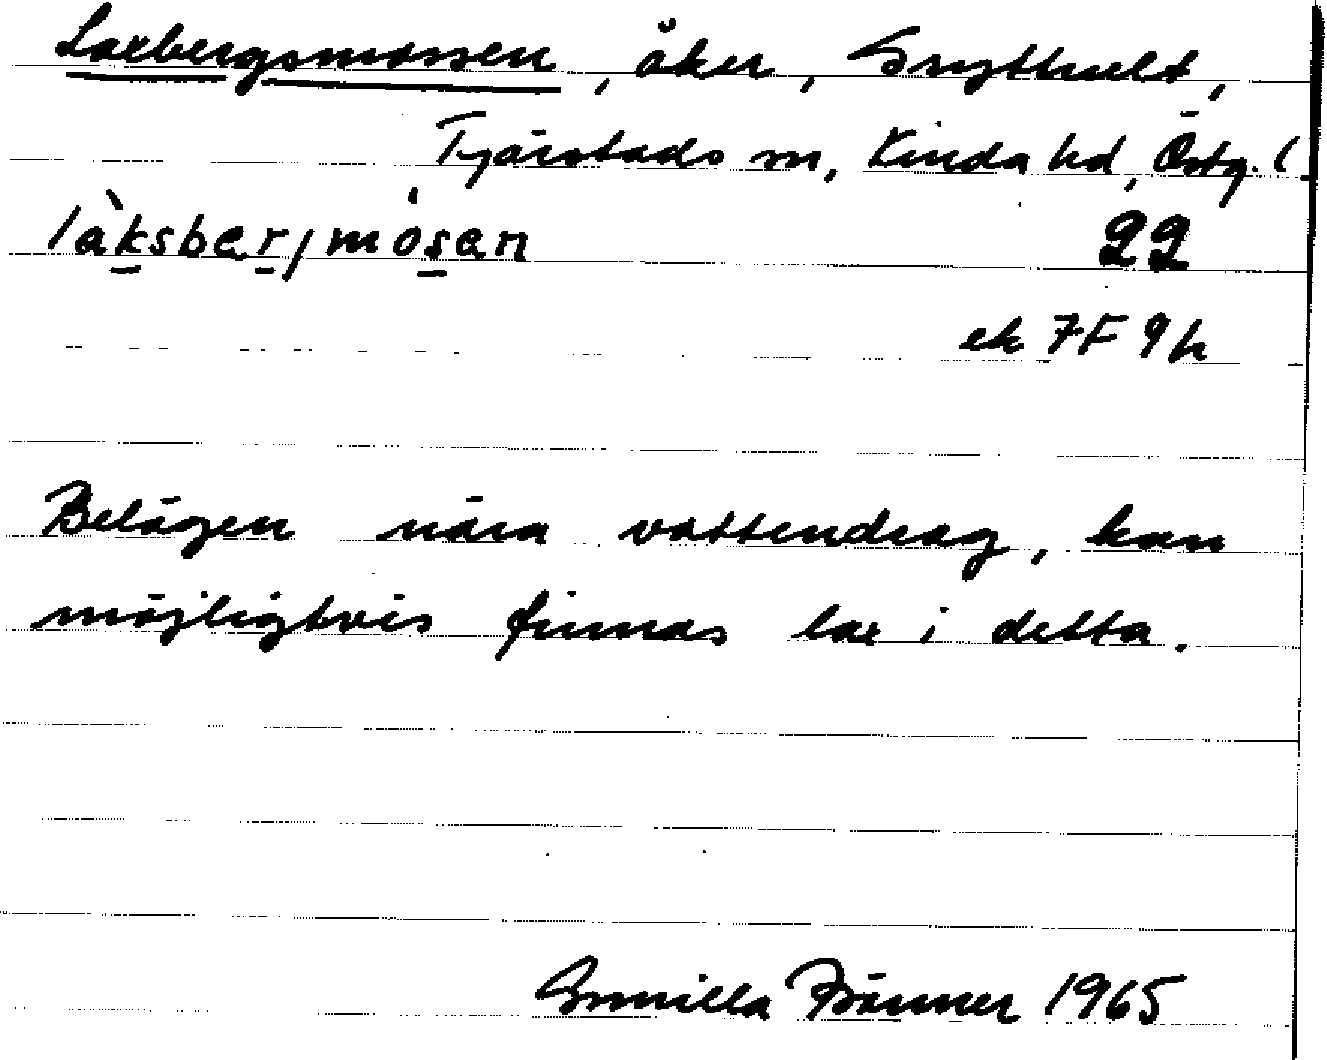 Laxbergsmossen, åker, Grythult,
Tjärstads sn, Kinda hd, Östg. l
làksbærjmósan
22
ek 7F 9h
Belägen nära vattendrag, kan
möjligtvis finnas lax i detta.
Gunilla Brånner 1965